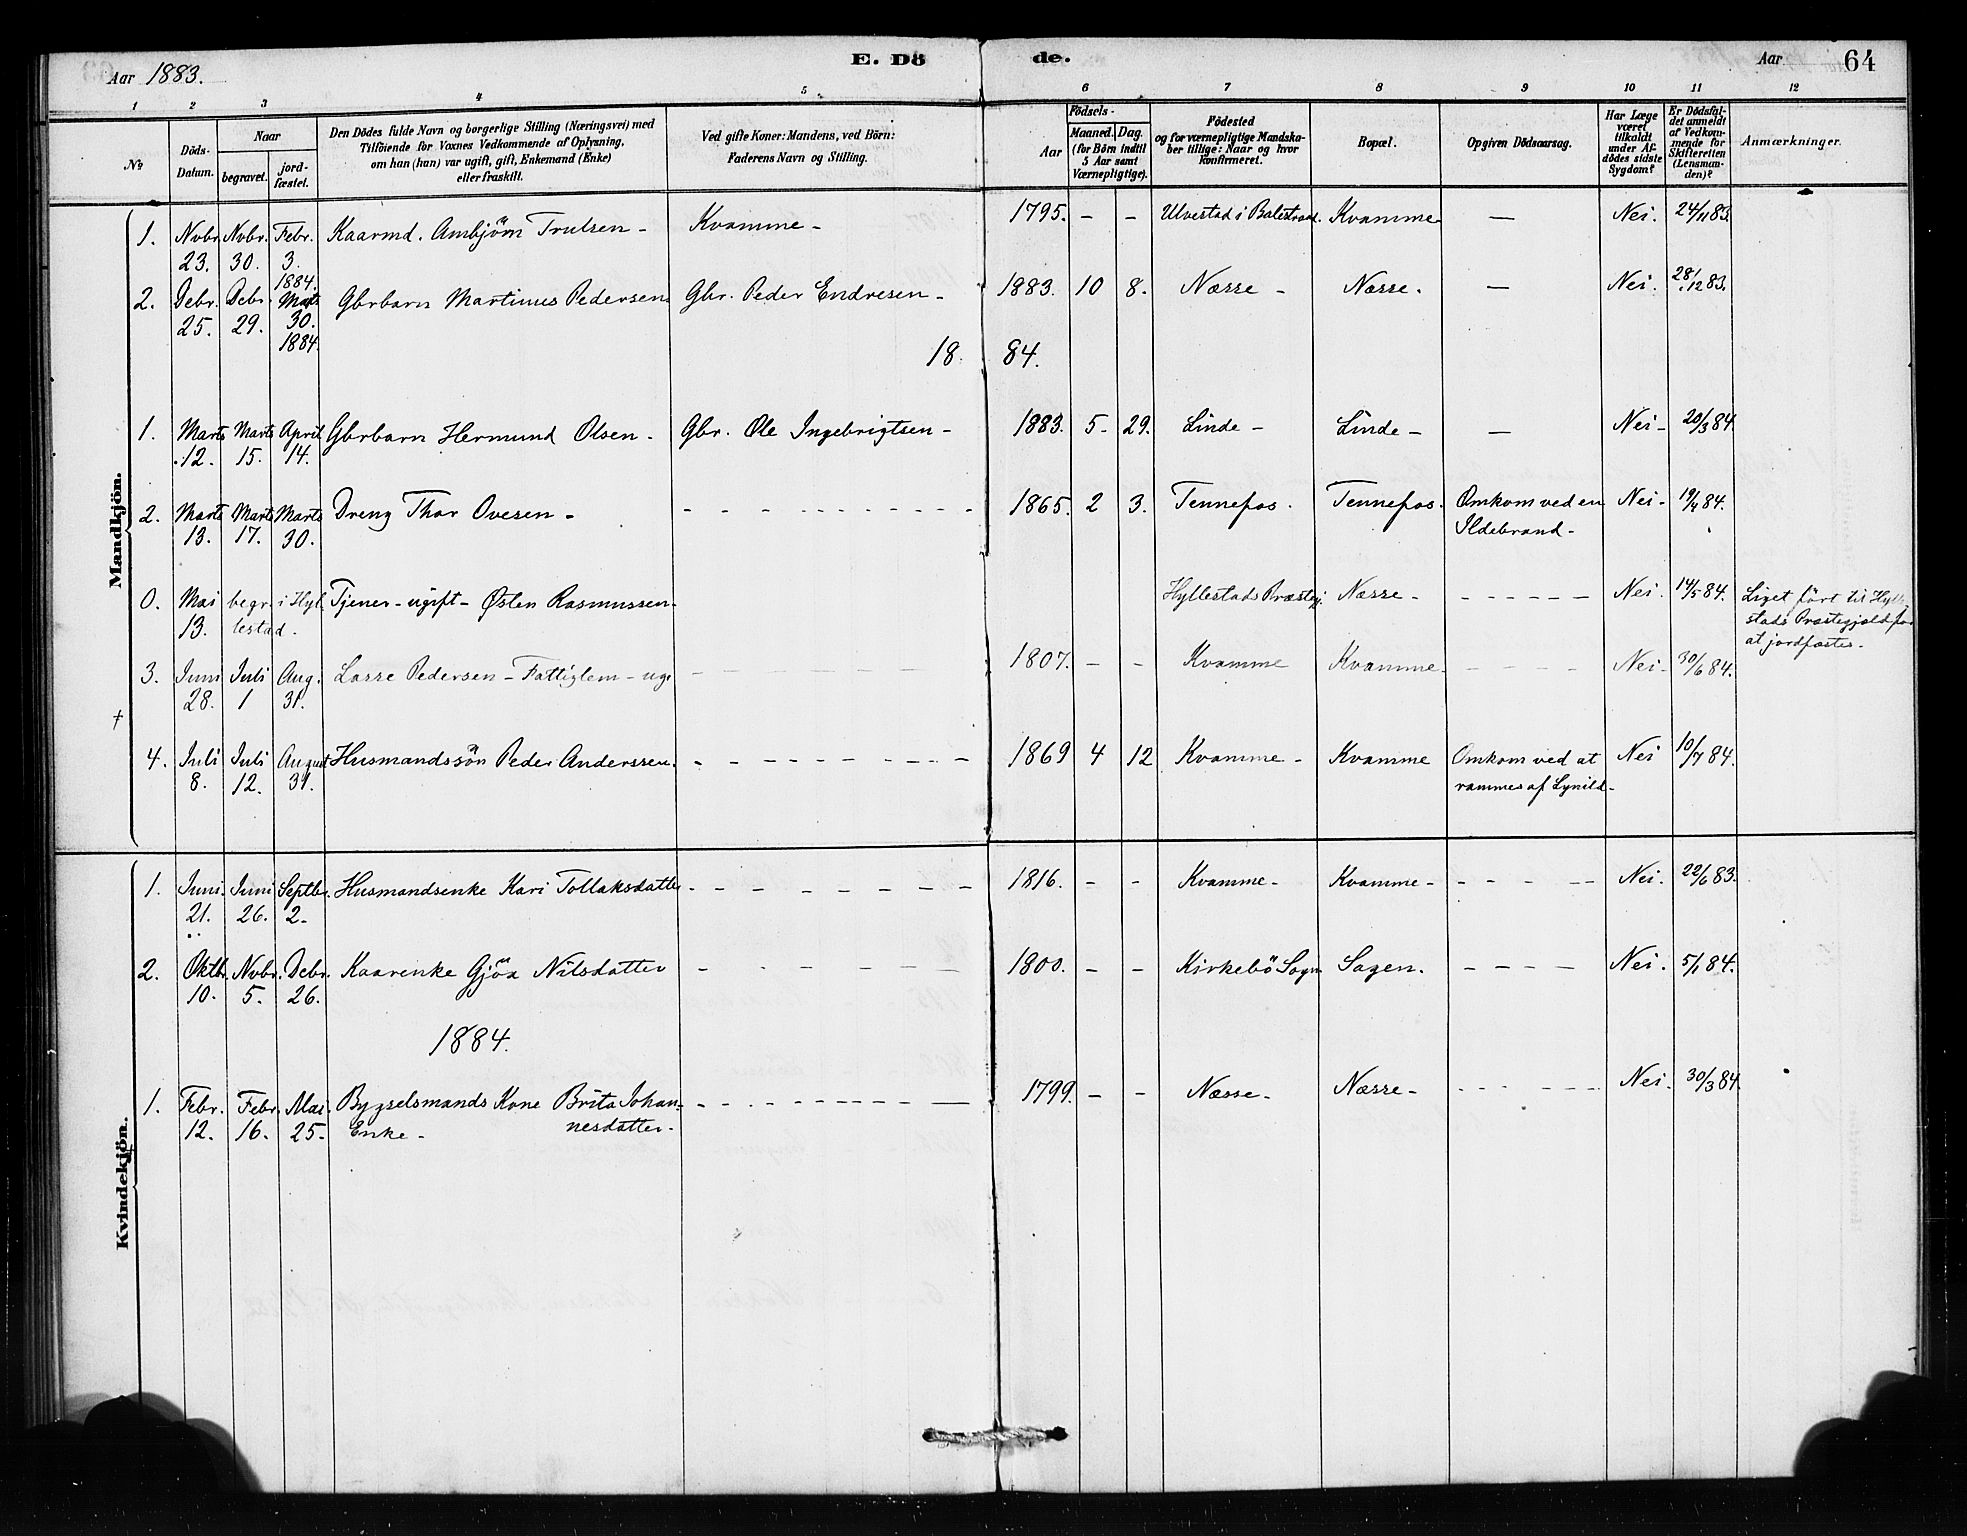 Aar 1883. E. Dö de. Aar 64
1 2 3 4 5 6 7 8 9 10 11 12
No
Döds-Datum.
Naar
begravet.
jord-fæstet.
Den Dödes fulde Navn og borgerlige Stilling (Næringsvei) med
Tilföiende for Voxnes Vedkommende af Oplysning,
om han (hun) var ugift, gift, Enkemand (Enke)
eller fraskilt.
Ved gifte Koner: Mandens, ved Börn:
Faderens Navn og Stilling.
Födsels-
Aar
Maaned. Dag.
(for Börn indtil
5 Aar samt
Værnepligtige).
Födested
og for værnepligtige Mandska-
ber tillige: Naar og hvor
Konfirmeret.
Bopæl.
Opgiven Dödsaarsag.
Har Læge
været
tilkaldt
under Af-
dödes sidste
Sygdom?
Er Dödsfal-
det anmeldt
af Vedkom-
mende for
Skifteretten
(Lensman-
den)?
Anmærkninger.
Mandkjön.
1. Novbr. 23. Novbr. 30. Febr. 3. 1884. Kaarmd. Ambjörn Trulsen - Kvamme - 1795. - - Ulvestad i Balestrand. Kvamme - — Nei. 24/11 83.
2. Debr. 25. Debr. 29. Marts 30. 1884. Gbrbarn Martinus Pedersen Gbr. Peder Endresen - 1883. 10 8. Næsse - Næsse. — Nei. 28/12 83.
18 84.
1. Marts 12. Marts 15. April 14. Gbrbarn Hermund Olsen - Gbr. Ole Ingebrigtsen - 1883. 5 - 29. Linde - Linde - — Nei - 20/3 84
2. Marts 13. Marts 17. Marts 30. Dreng Thor Ovesen - 1865. 2 3. Tennefos. Tennefos. Omkom ved en Ildebrand - Nei - 19/4 84.
0. Mai 13. begr. i Hyllestad. Tjener - ugift - Østen Rasmussen - Hyllestads Præstegj. Næsse - Nei. 14/5 84. Liget fört til Hylle-
stads Præstegjeld for
at jordfæstes -
3. Juni 28. Juli 1 Aug. 31. Lasse Pedersen - Fattiglem - ugi 1807. - - Kvamme Kvamme - Nei - 30/6 84.
4. Juli 8. Juli 12. August 31. Husmandssön Peder Anderssen. 1869 4 12 Kvamme - Kvamme Omkom ved at rammes af Lynild - Nei 10/7 84.
Kvindekjön.
1. Juni 21. Juni 26. Septbr. 2 - Husmandsenke Kari Tollaksdatter 1816. - - Kvamme - Kvamme - Nei. 22/6 83.
2. Oktbr. 10. Novbr. 5. Debr. 26. Kaarenke Gjöa Nilsdatter 1800. - - Kirkebö Sogn Sagen. Nei. 5/1 84.
1884.
1. Febr. 12. Febr. 16. Mai 25. Bygselsmands Kone Brita Johan-
Enke - nesdatter - 1799. - - Næsse - Næsse - Nei. 30/3 84.